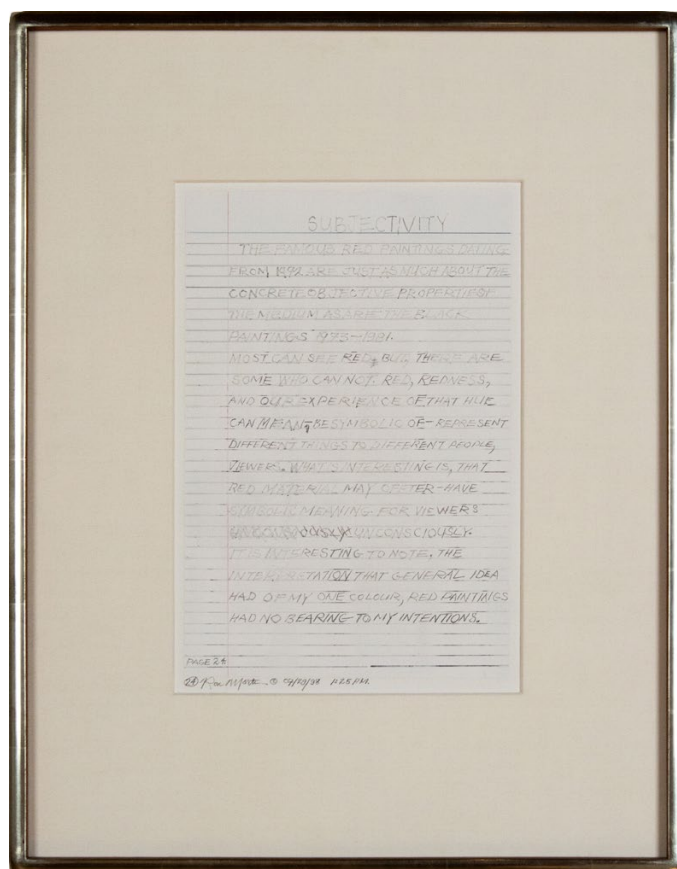 SUBJECTIVITY
THE FAMOUS RED PAINTINGS DATING
FROM 1992 ARE JUST AS MUCH ABOUT THE
CONCRETE OBJECTIVE PROPERTIE OF
THE MEDIUM AS ARE THE BLACK
PAINTINGS 1975-1981.
MOST CAN SEE RED, BUT THERE ARE
SOME WHO CAN NOT. RED, REDNESS,
AND OUR EXPERIENCE OF THAT HUE
CAN MEAN, BE SYMBOLIC OF - REPRESENT
DIFFERENT THINGS TO DIFFERENT PEOPLE,
VIEWERS. WHAT'S INTERESTING IS, THAT
RED MATERIAL MAY OFFER - HAVE
SIMBOLIC MEANING FOR VIEWERS
UNCONSCIOUSLY.
IT IS INTERESTING TO NOTE, THE
INTERPRETATION THAT GENERAL IDEA
HAD OF MY ONE COLOUR, RED PAINTINGS
HAD NO BEARING TO MY INTENTIONS.
PAGE 24
24 ©